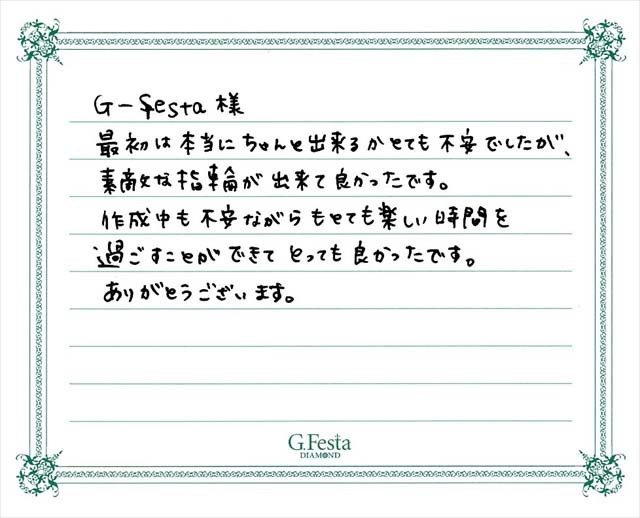 G-Festa 様
最初は本当にちゃんと出来るかとても不安でしたが、
素敵な指輪が出来て良かったです。
作成中も不安ながらもとても楽しい時間を
過ごすことができてとっても良かったです。
ありがとうございます。
G.Festa
DIAMOND